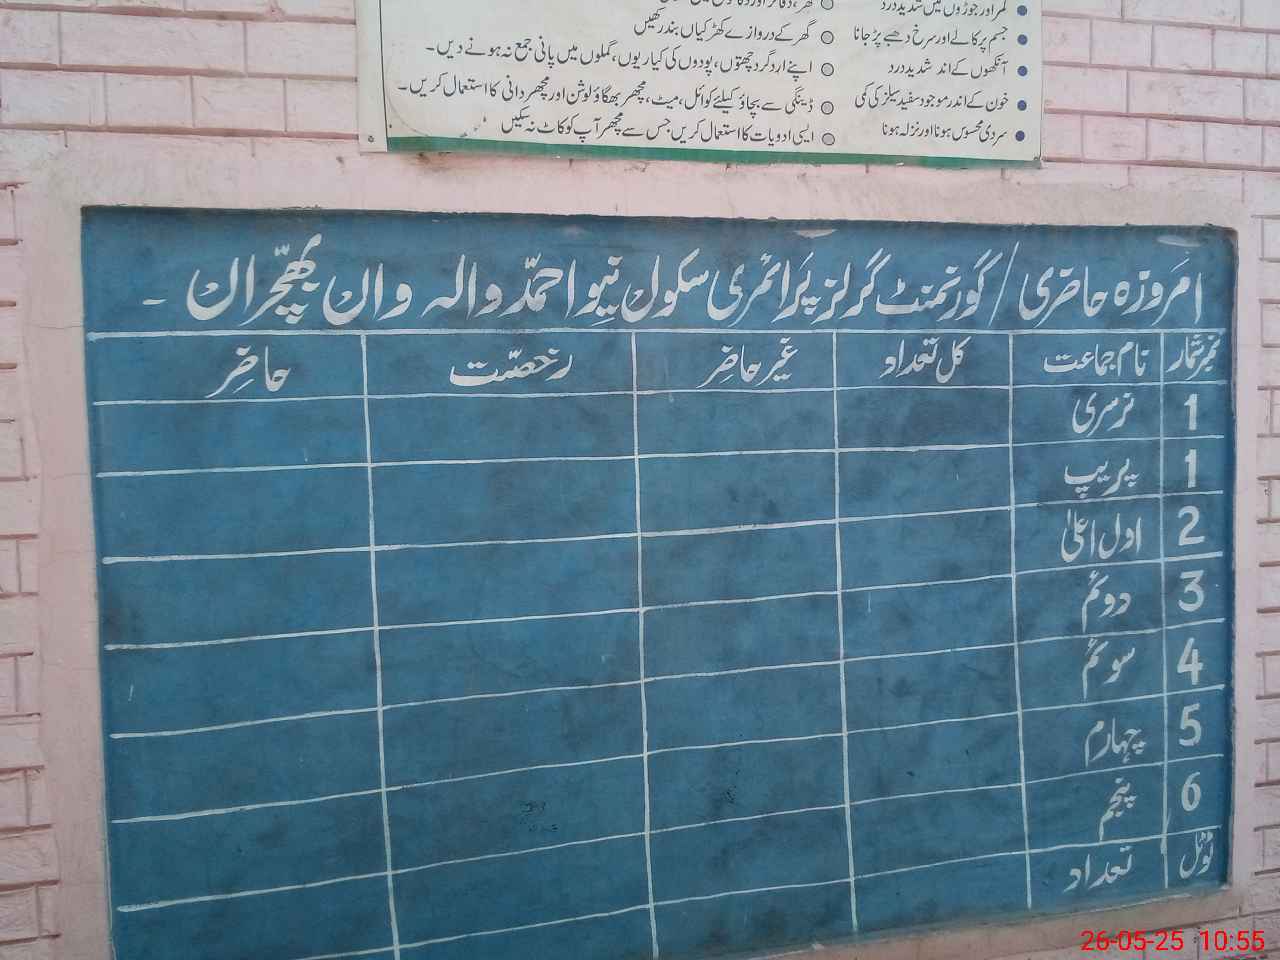 کمر اور جوڑوں میں شدید درد
جسم پر کالے اور سرخ دھبے پڑ جانا
آنکھوں کے اندر شدید درد
خون کے اندر موجود سفید سیلز کی کمی
سردی محسوس ہونا اور نزلہ ہونا
گھر کے دروازے کھڑکیاں بند رکھیں
اپنے ارد گرد چھتوں، پودوں کی کیاریوں، گملوں میں پانی جمع نہ ہونے دیں۔
ڈینگی سے بچاؤ کیلئے کوائل، میٹ، مچھر بھگاؤ لوشن اور مچھر دانی کا استعمال کریں۔
ایسی ادویات کا استعمال کریں جس سے مچھر آپ کو کاٹ نہ سکیں
امروزہ حاضری / گورنمنٹ گرلز پرائمری سکول نیو احمد والہ واں بھچراں ۔
نمبر شمار نام جماعت کل تعداد غیر حاضر رخصت حاضر
1 نرسری
1 پریپ
2 اول اعلیٰ
3 دوئم
4 سوئم
5 چہارم
6 پنجم
ٹوٹل تعداد
26-05-25 10:55